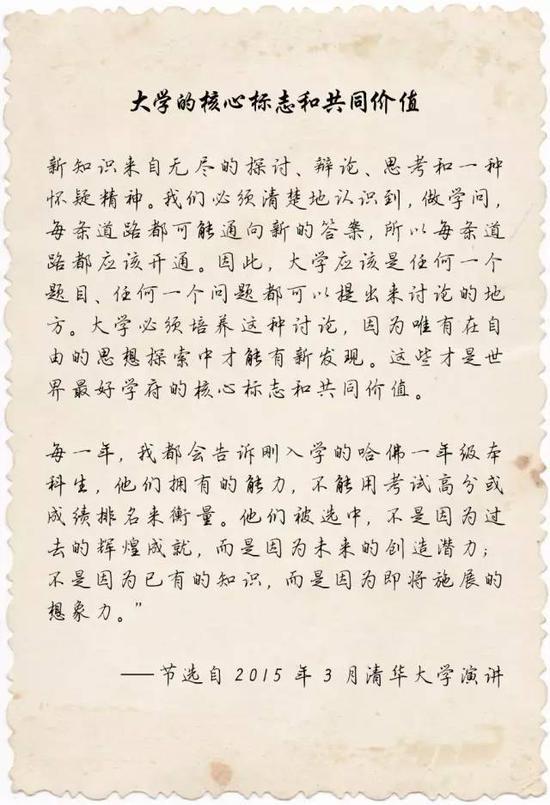 大学的核心标志和共同价值
新知识来自无尽的探讨、辩论、思考和一种
怀疑精神。我们必须清楚地认识到，做学问，
每条道路都可能通向新的答案，所以每条道
路都应该开通。因此，大学应该是任何一个
题目、任何一个问题都可以提出来讨论的地
方。大学必须培养这种讨论，因为唯有在自
由的思想探索中才能有新发现。这些才是世
界最好学府的核心标志和共同价值。
每一年，我都会告诉刚入学的哈佛一年级本
科生，他们拥有的能力，不能用考试高分或
成绩排名来衡量。他们被选中，不是因为过
去的辉煌成就，而是因为未来的创造潜力；
不是因为已有的知识，而是因为即将施展的
想象力。”
——节选自 2015 年 3 月清华大学演讲